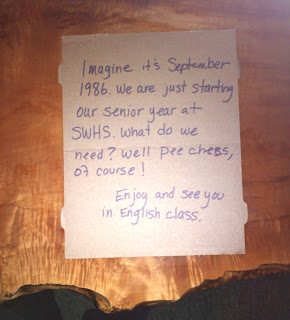 Imagine it's September
1986. We are just starting
our senior year at
SWHS. What do we
need? Well Pee Chees,
of course!
Enjoy and see you
in English class.